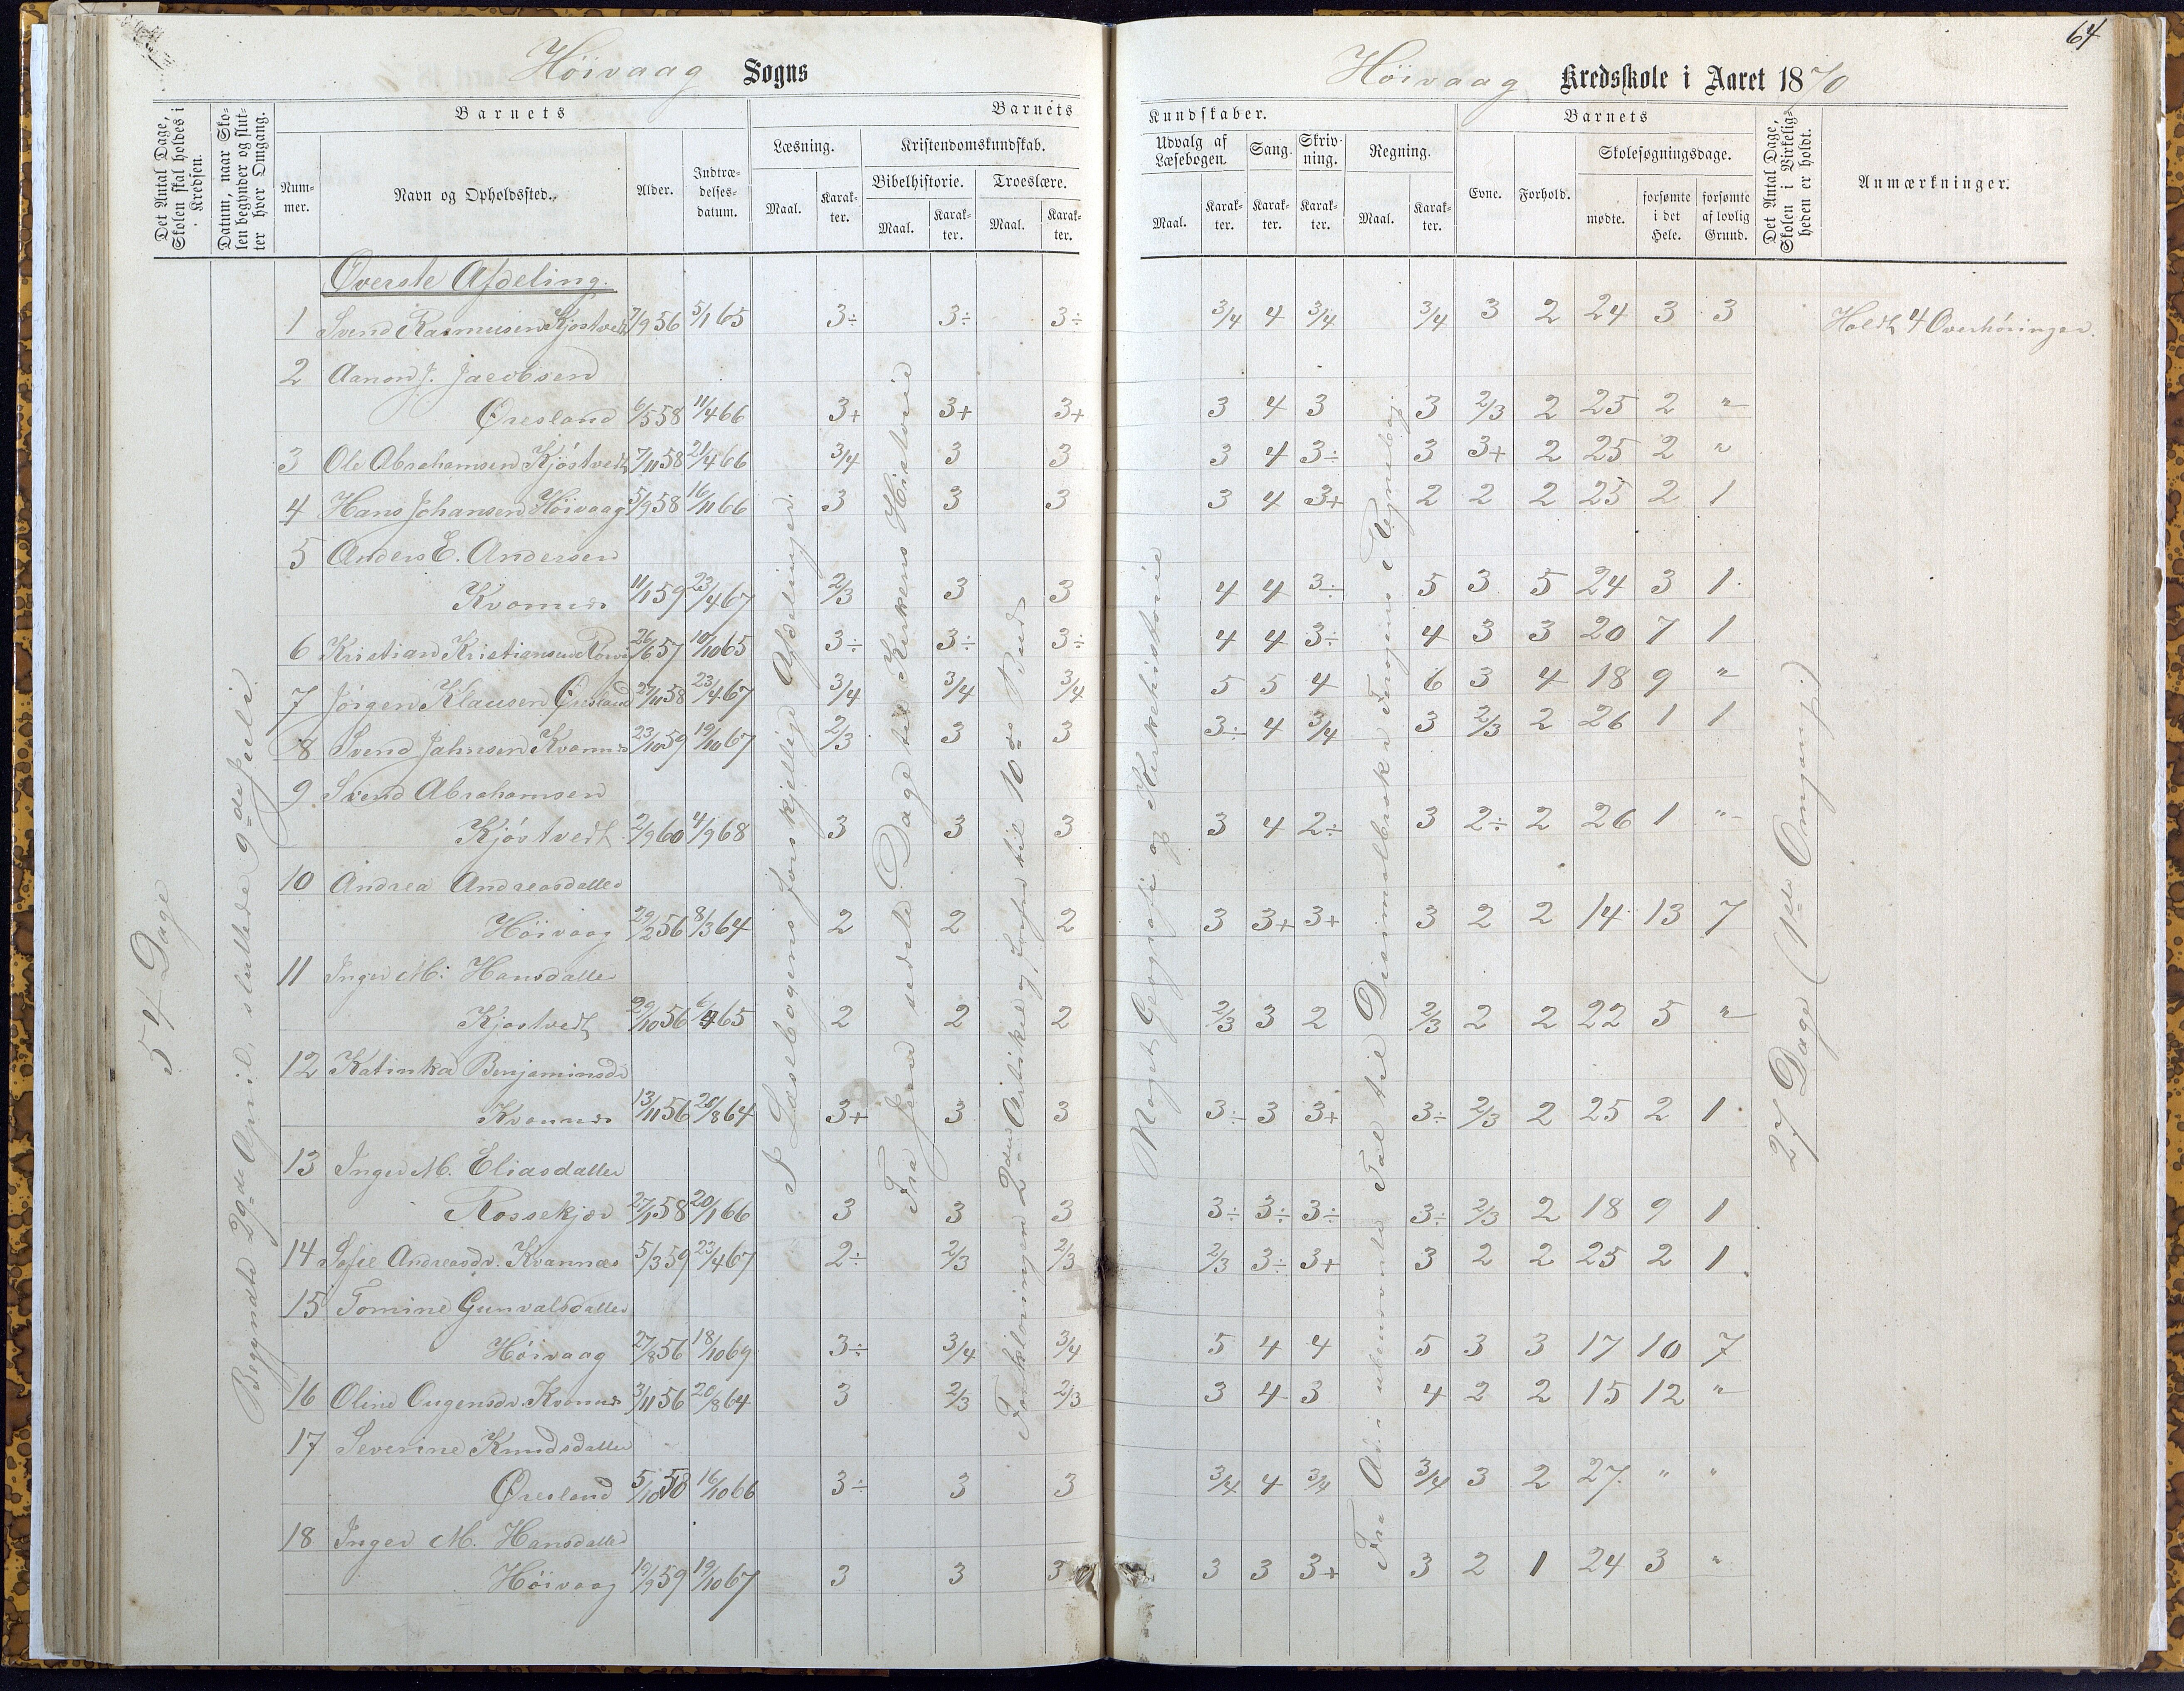 64
Höivaag Sogns
Höivaag Kredsskole i Aaret 1870
Det Antal Dage, Skolen skal holdes i Kredsen.
Datum, naar Skolen begynder og slutter hver Omgang.
Barnets
Nummer.
Navn og Opholdssted.
Alder.
Indtrædelsesdatum.
Barnets
Læsning.
Maal.
Karakter.
Kristendomskundskab.
Bibelhistorie.
Maal.
Karakter.
Troeslære.
Maal.
Karakter.
Kundskaber.
Udvalg af Læsebogen.
Maal.
Karakter.
Sang.
Karakter.
Skrivning.
Karakter.
Regning.
Maal.
Karakter.
Barnets
Evne.
Forhold.
Skolesøgningsdage.
mødte.
forsømte i det Hele.
forsømte af lovlig Grund.
Det Antal Dage, Skolen i Virkeligheden er holdt.
Anmærkninger.
54 Dage
Begyndte 29de April, sluttede 9de Juli.
I Læsebogens forskjellige Afdelinger.
Fra Jesu sidste Dage til Kirkens Historie
Forklaringen 2den Artikel og Loven til 10de Bud
Noget Geografi og Kirkehistorie
Fra Add. i ubenævnte Tal til Decimalbrøk i Regnebog.
27 Dage (1ste Omgang)
Øverste Afdeling.
1 Svend Rasmussen Kjøstvedt 7/9 56 5/1 65 3÷ 3÷ 3÷ 3/4 4 3/4 3/4 3 2 24 3 3 Holdt 4 Overhøringer.
2 Aanon J. Jacobsen
Øresland 6/5 58 11/4 66 3+ 3+ 3+ 3 4 3 3 2/3 2 25 2 "
3 Ole Abrahamsen Kjöstvedt 7/11 58 21/4 66 3/4 3 3 3 4 3÷ 3 3+ 2 25 2 "
4 Hans Johansen Höivaag 5/9 58 16/11 66 3 3 3 3 4 3+ 2 2 2 25 2 1
5 Anders E. Andersen
Kvannes 11/1 59 23/4 67 2/3 3 3 4 4 3÷ 5 3 5 24 3 1
6 Kristian Kristiansen 26/6 57 10/10 65 3÷ 3÷ 3÷ 4 4 3÷ 4 3 3 20 7 1
7 Jörgen Klausen Øresland 27/11 58 23/4 67 3/4 3/4 3/4 5 5 4 6 3 4 18 9 "
8 Svend Jahnsen Kvannes 23/10 59 19/10 67 2/3 3 3 3÷ 4 3/4 3 2/3 2 26 1 1
9 Svend Abrahamsen
Kjöstvedt 2/9 60 4/9 68 3 3 3 3 4 2÷ 3 2÷ 2 26 1 "
10 Andrea Andreasdatter
Höivaag 29/2 56 8/3 64 2 2 2 3 3+ 3+ 3 2 2 14 13 7
11 Inger M. Hansdatter
Kjøstvedt 29/10 56 6/4 65 2 2 2 2/3 3 2 2/3 2 2 22 5 "
12 Katinka Benjaminsdr
Kvannes 13/11 56 20/8 64 3+ 3 3 3÷ 3 3+ 3÷ 2/3 2 25 2 1
13 Inger M. Eliasdatter
Rossekjær 27/1 58 20/1 66 3 3 3 3÷ 3÷ 3÷ 3÷ 2/3 2 18 9 1
14 Sofie Andreasdr. Kvannæs 5/3 59 23/4 67 2÷ 2/3 2/3 2/3 3÷ 3+ 3 2 2 25 2 1
15 Tomine Gunvalsdatter
Höivaag 27/8 56 18/10 69 3÷ 3/4 3/4 5 4 4 5 3 3 17 10 7
16 Oline Ougensdr. Kvannes 3/11 56 20/8 64 3 2/3 2/3 3 4 3 4 2 2 15 12 "
17 Severine Knudsdatter
Øresland 5/10 58 16/10 66 3÷ 3 3 3/4 4 3/4 3/4 3 2 27 " "
18 Inger M. Hansdatter
Höivaag 19/9 59 19/10 67 3 3 3 3 3 3+ 3 2 1 24 3 "